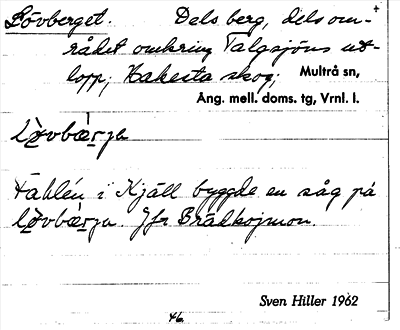 Lövberget. Dels berg, dels om-
rådet omkring Talgsjöns ut-
lopp, Hakesta skog, Multrå sn,
Ång. mell. doms. tg, Vrnl. l.
Fahlén i Kjäll byggde en såg på
Jfr Brädkojmon.
Sven Hiller 1962
46